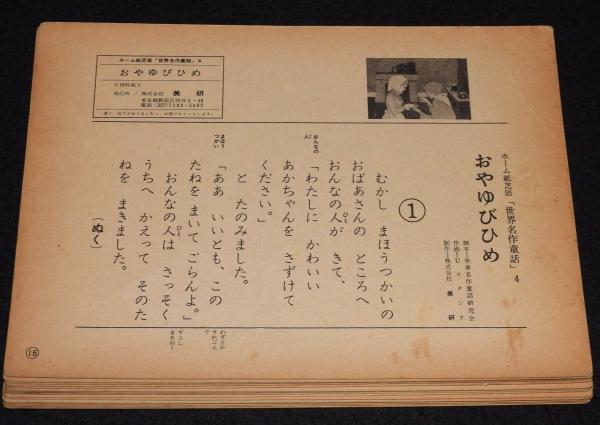 ホーム紙芝居「世界名作童話」4
おやゆびひめ
脚本―世界名作童話研究会
作画―Uスタジオ
制作―株式会社 美研
①
むかし まほうつかいの
おばあさんの ところへ
おんなの人が きて、
おんなの人
「わたしに かわいい
あかちゃんを さずけて
ください。」
と たのみました。
まほうつかい
「ああ いいとも、この
たねを まいて ごらんよ。」
おんなの人は さっそく
うちへ かえって そのた
ねを まきました。
(ぬく)
ホーム紙芝居「世界名作童話」4
おやゆびひめ
発行所/株式会社 美研
⑯